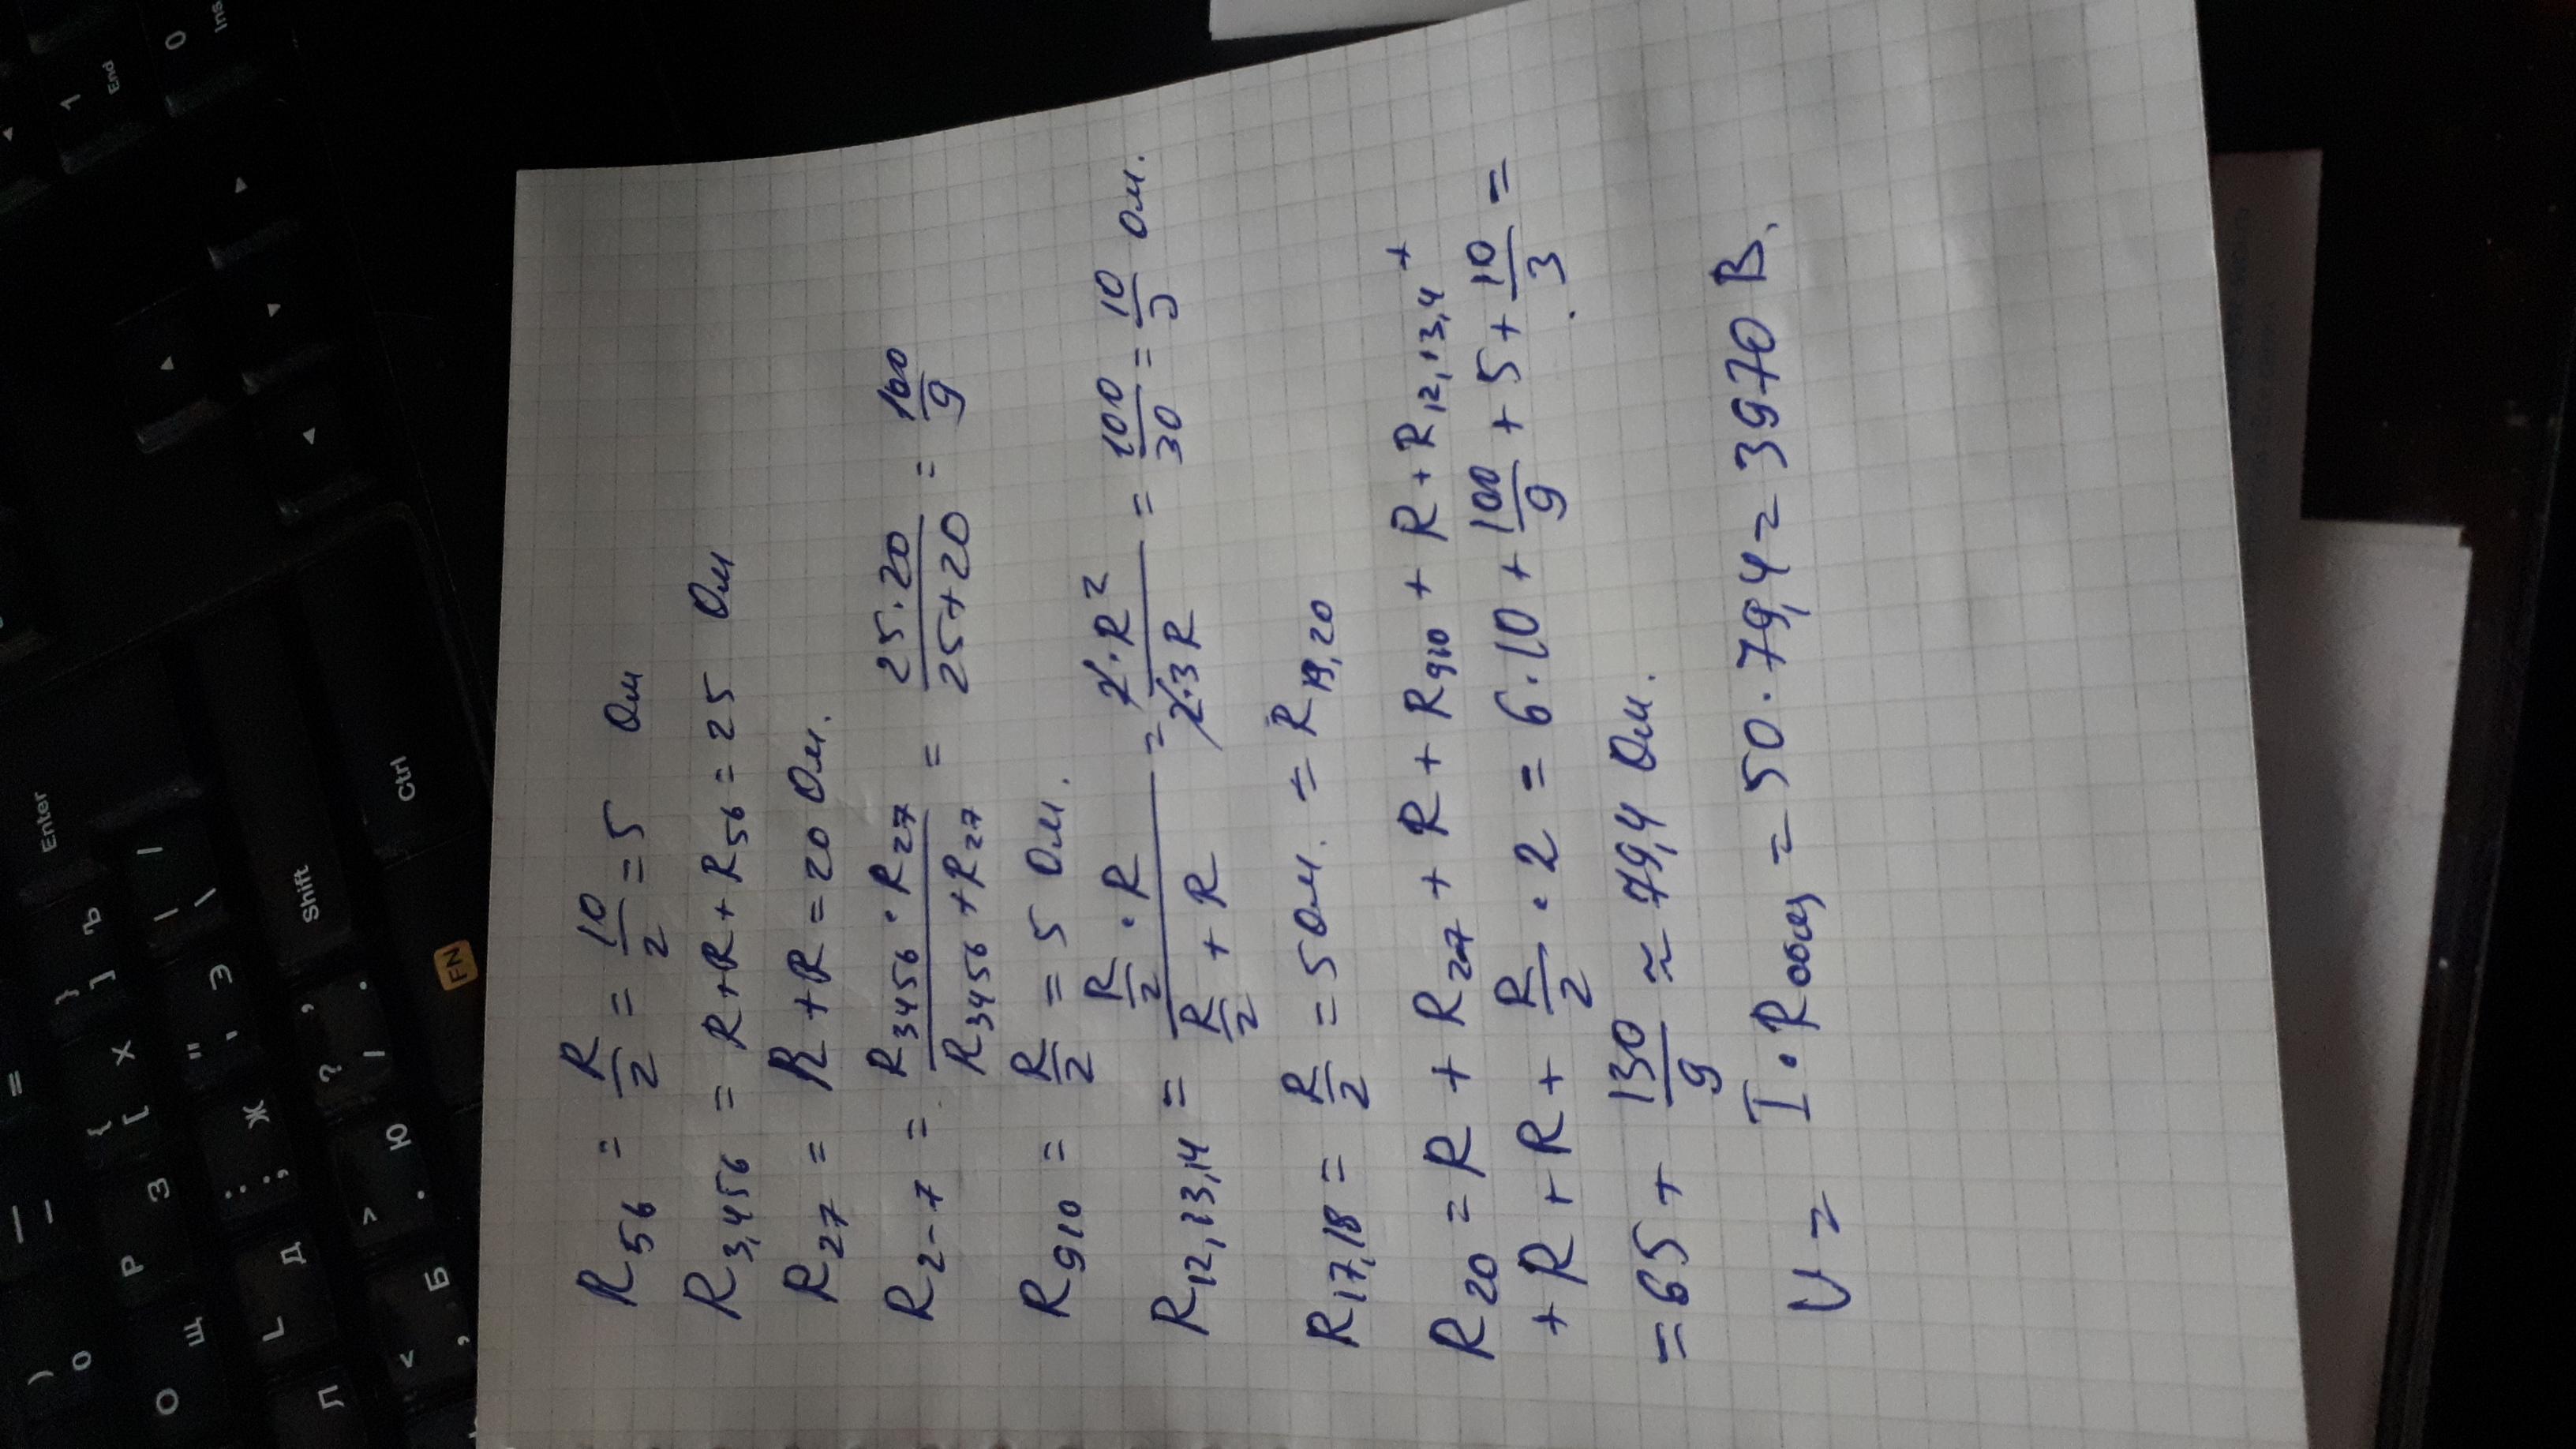 R56 = R/2 = 10/2 = 5 Ом
R3,456 = R+R+R56 = 25 Ом
R27 = R+R = 20 Ом.
R2-7 = R3456 · R27 / R3456 + R27 = 25·20 / 25+20 = 100/9
R910 = R/2 = 5 Ом.
R12,13,14 = R/2 · R / R/2 + R = 2·R² / 2·3R = 100/30 = 10/3 Ом.
R17,18 = R/2 = 5 Ом. = R19,20
R20 = R + R27 + R + R910 + R + R12,13,4 +
+ R + R + R/2 · 2 = 6·10 + 100/9 + 5 + 10/3 =
= 65 + 130/9 ≈ 79,4 Ом.
U = I · Rобщ = 50 · 79,4 = 3970 В.
Enter
Shift
Ctrl
FN
1
End
0
Ins
=
)
0
О
Щ
Р
З
{
[
Х
}
]
Ъ
|
\
/
L
Д
:
;
Ж
"
'
Э
Л
<
,
Б
>
.
Ю
?
/